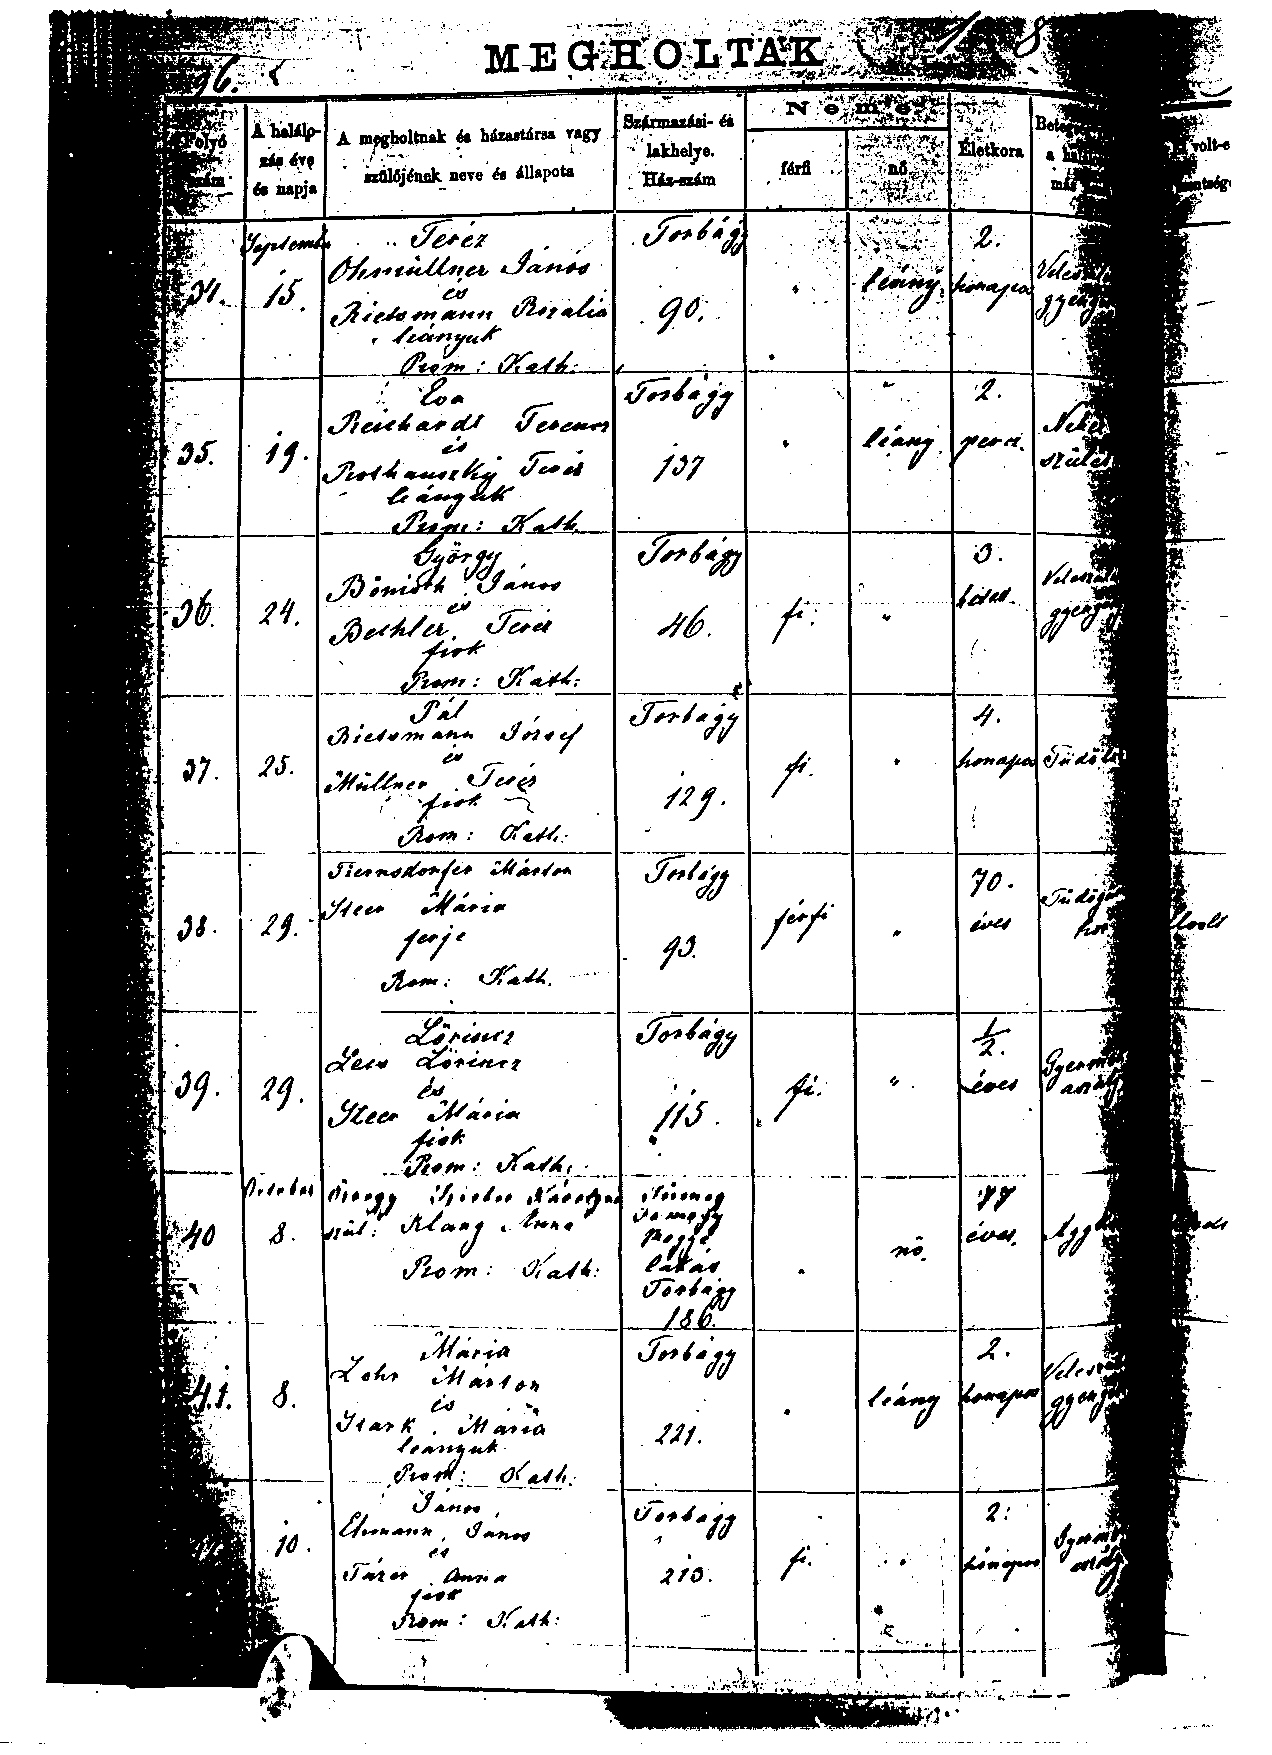 MEGHOLTAK 1 8
96.
Folyó szám
A halálo-
zás éve
és napja
A megholtnak és házastársa vagy
szülőjének neve és állapota
Származási- és
lakhelye.
Ház-szám
Neme
férfi
nő
Életkora
Beteg
a halál
más
volt-e
szentség
34.
September
15.
Teréz
Ohmüllner János
és
Rietsmann Rozalia
leányuk
Rom: Kath:
Torbágy
90.
"
leány
2.
honapos
Velesz
gyeng
35.
19.
Éva
Reichardt Ferencz
és
Rothauszky Teréz
leányuk
Rom: Kath.
Torbágy
137
"
leány
2.
percz.
Nehez
szülés
36.
24.
György
Bönisch János
és
Bechler Teréz
fiok
Rom: Kath:
Torbágy
46.
fi.
"
3.
hetes.
Veleszül
gyeng
37.
25.
Pál
Rietsmann József
és
Müllner Teréz
fiok
Rom: Kath:
Torbágy
129.
fi.
"
4.
honapos
Tüdő
38.
29.
Sterr Mária
ferje
Rom: Kath.
Torbágy
93.
férfi
"
70.
éves
Tüdőg
kor
39.
29.
Lőrincz
Lőrincz
és
Sterr Mária
fiok
Rom: Kath.
Torbágy
115.
fi.
"
1/2.
éves
Gyerm
aszály
40
October
8.
szül: Klang Anna
Rom: Kath:
Somogy
megye
lakás
Torbágy
186.
"
nő.
77
éves.
Agg
41.
8.
Mária
Lohr Márton
és
Stark Mária
leanyuk
Rom: Kath:
Torbágy
221.
"
leány
2.
honapos
Velesz
gyeng
10.
János
Ehmann János
és
Anna
fiok
Rom: Kath:
Torbágy
213.
fi.
"
2.
hónapos
Gyerm
aszály